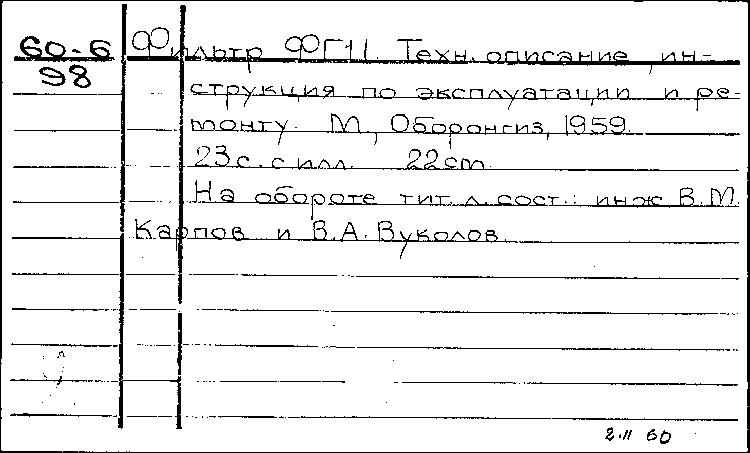 60-6 Фильтр ФГ11 Техн. описание, ин-
98 струкция по эксплуатации и ре-
монту. М., Оборонгиз, 1959.
23 с. с илл. 22 cm.
На обороте тит. л. сост.: инж В.М.
Карпов и В.А. Вуколов
2.11 60